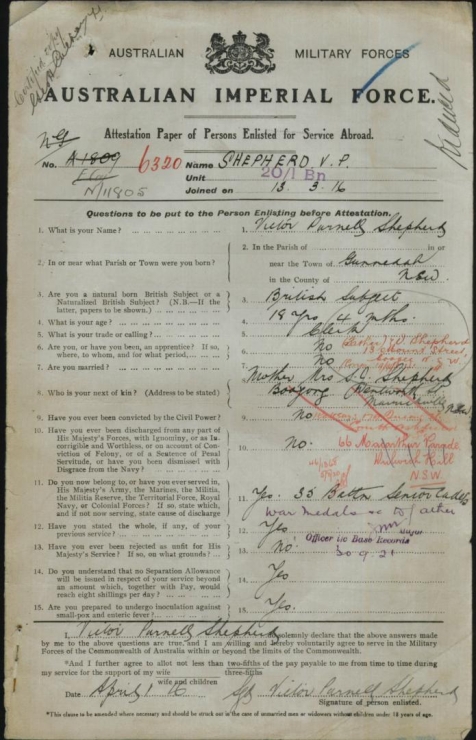 AUSTRALIAN MILITARY FORCES
AUSTRALIAN IMPERIAL FORCE.
Attestation Paper of Persons Enlisted for Service Abroad.
No. A1809 6320 Name SHEPHERD, V. P.
N/11805 Unit 20/1 Bn
Joined on 13 3. 16
Questions to be put to the Person Enlisting before Attestation.
1. What is your Name? 1. Victor Parnell Shepherd
2. In or near what Parish or Town were you born? 2. In the Parish of in or
near the Town of Gunnedah
in the County of NSW
3. Are you a natural born British Subject or a
Naturalized British Subject? (N.B.—If the
latter, papers to be shown.) 3. British Subject
4. What is your age? 4. 18 yrs 4 mths.
5. What is your trade or calling? 5. Clerk
6. Are you, or have you been, an apprentice? If so,
where, to whom, and for what period, 6. No
7. Are you married? 7. No
8. Who is your next of kin? (Address to be stated) 8. Mother Mrs S. C. Shepherd
Wentworth St
Marrickville
9. Have you ever been convicted by the Civil Power? 9. No
10. Have you ever been discharged from any part of
His Majesty's Forces, with Ignominy, or as In-
corrigible and Worthless, or on account of Con-
viction of Felony, or of a Sentence of Penal
Servitude, or have you been dismissed with
Disgrace from the Navy? 10. No.
66
Dulwich Hill
N.S.W.
11. Do you now belong to, or have you ever served in,
His Majesty's Army, the Marines, the Militia,
the Militia Reserve, the Territorial Force, Royal
Navy, or Colonial Forces? If so, state which,
and if not now serving, state cause of discharge 11. Yes. 33 Battn Senior Cadets
War medals &c to father
12. Have you stated the whole, if any, of your
previous service? 12. Yes
Major
Officer i/c Base Records
13. Have you ever been rejected as unfit for His
Majesty's Service? If so, on what grounds? 13. No.
30 9 21
14. Do you understand that no Separation Allowance
will be issued in respect of your service beyond
an amount which, together with Pay, would
reach eight shillings per day? 14. Yes
15. Are you prepared to undergo inoculation against
small-pox and enteric fever? 15. Yes.
I, Victor Parnell Shepherd solemnly declare that the above answers made
by me to the above questions are true, and I am willing and hereby voluntarily agree to serve in the Military
Forces of the Commonwealth of Australia within or beyond the limits of the Commonwealth.
*And I further agree to allot not less than two-fifths of the pay payable to me from time to time
three-fifths
during my service for the support of my wife
wife and children
Date April 1 16 Sgd Victor Parnell Shepherd
Signature of person enlisted.
*This clause to be amended where necessary and should be struck out in the case of unmarried men or widowers without children under 18 years of age.